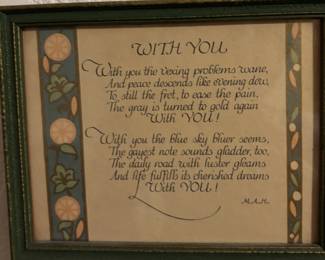 WITH YOU
With you the vexing problems wane,
And peace descends like evening dew,
To still the fret, to ease the pain,
The gray is turned to gold again
With YOU!
With you the blue sky bluer seems,
The gayest note sounds gladder, too,
The daily road with luster gleams
And life fulfills its cherished dreams
With YOU!
M.A.H.